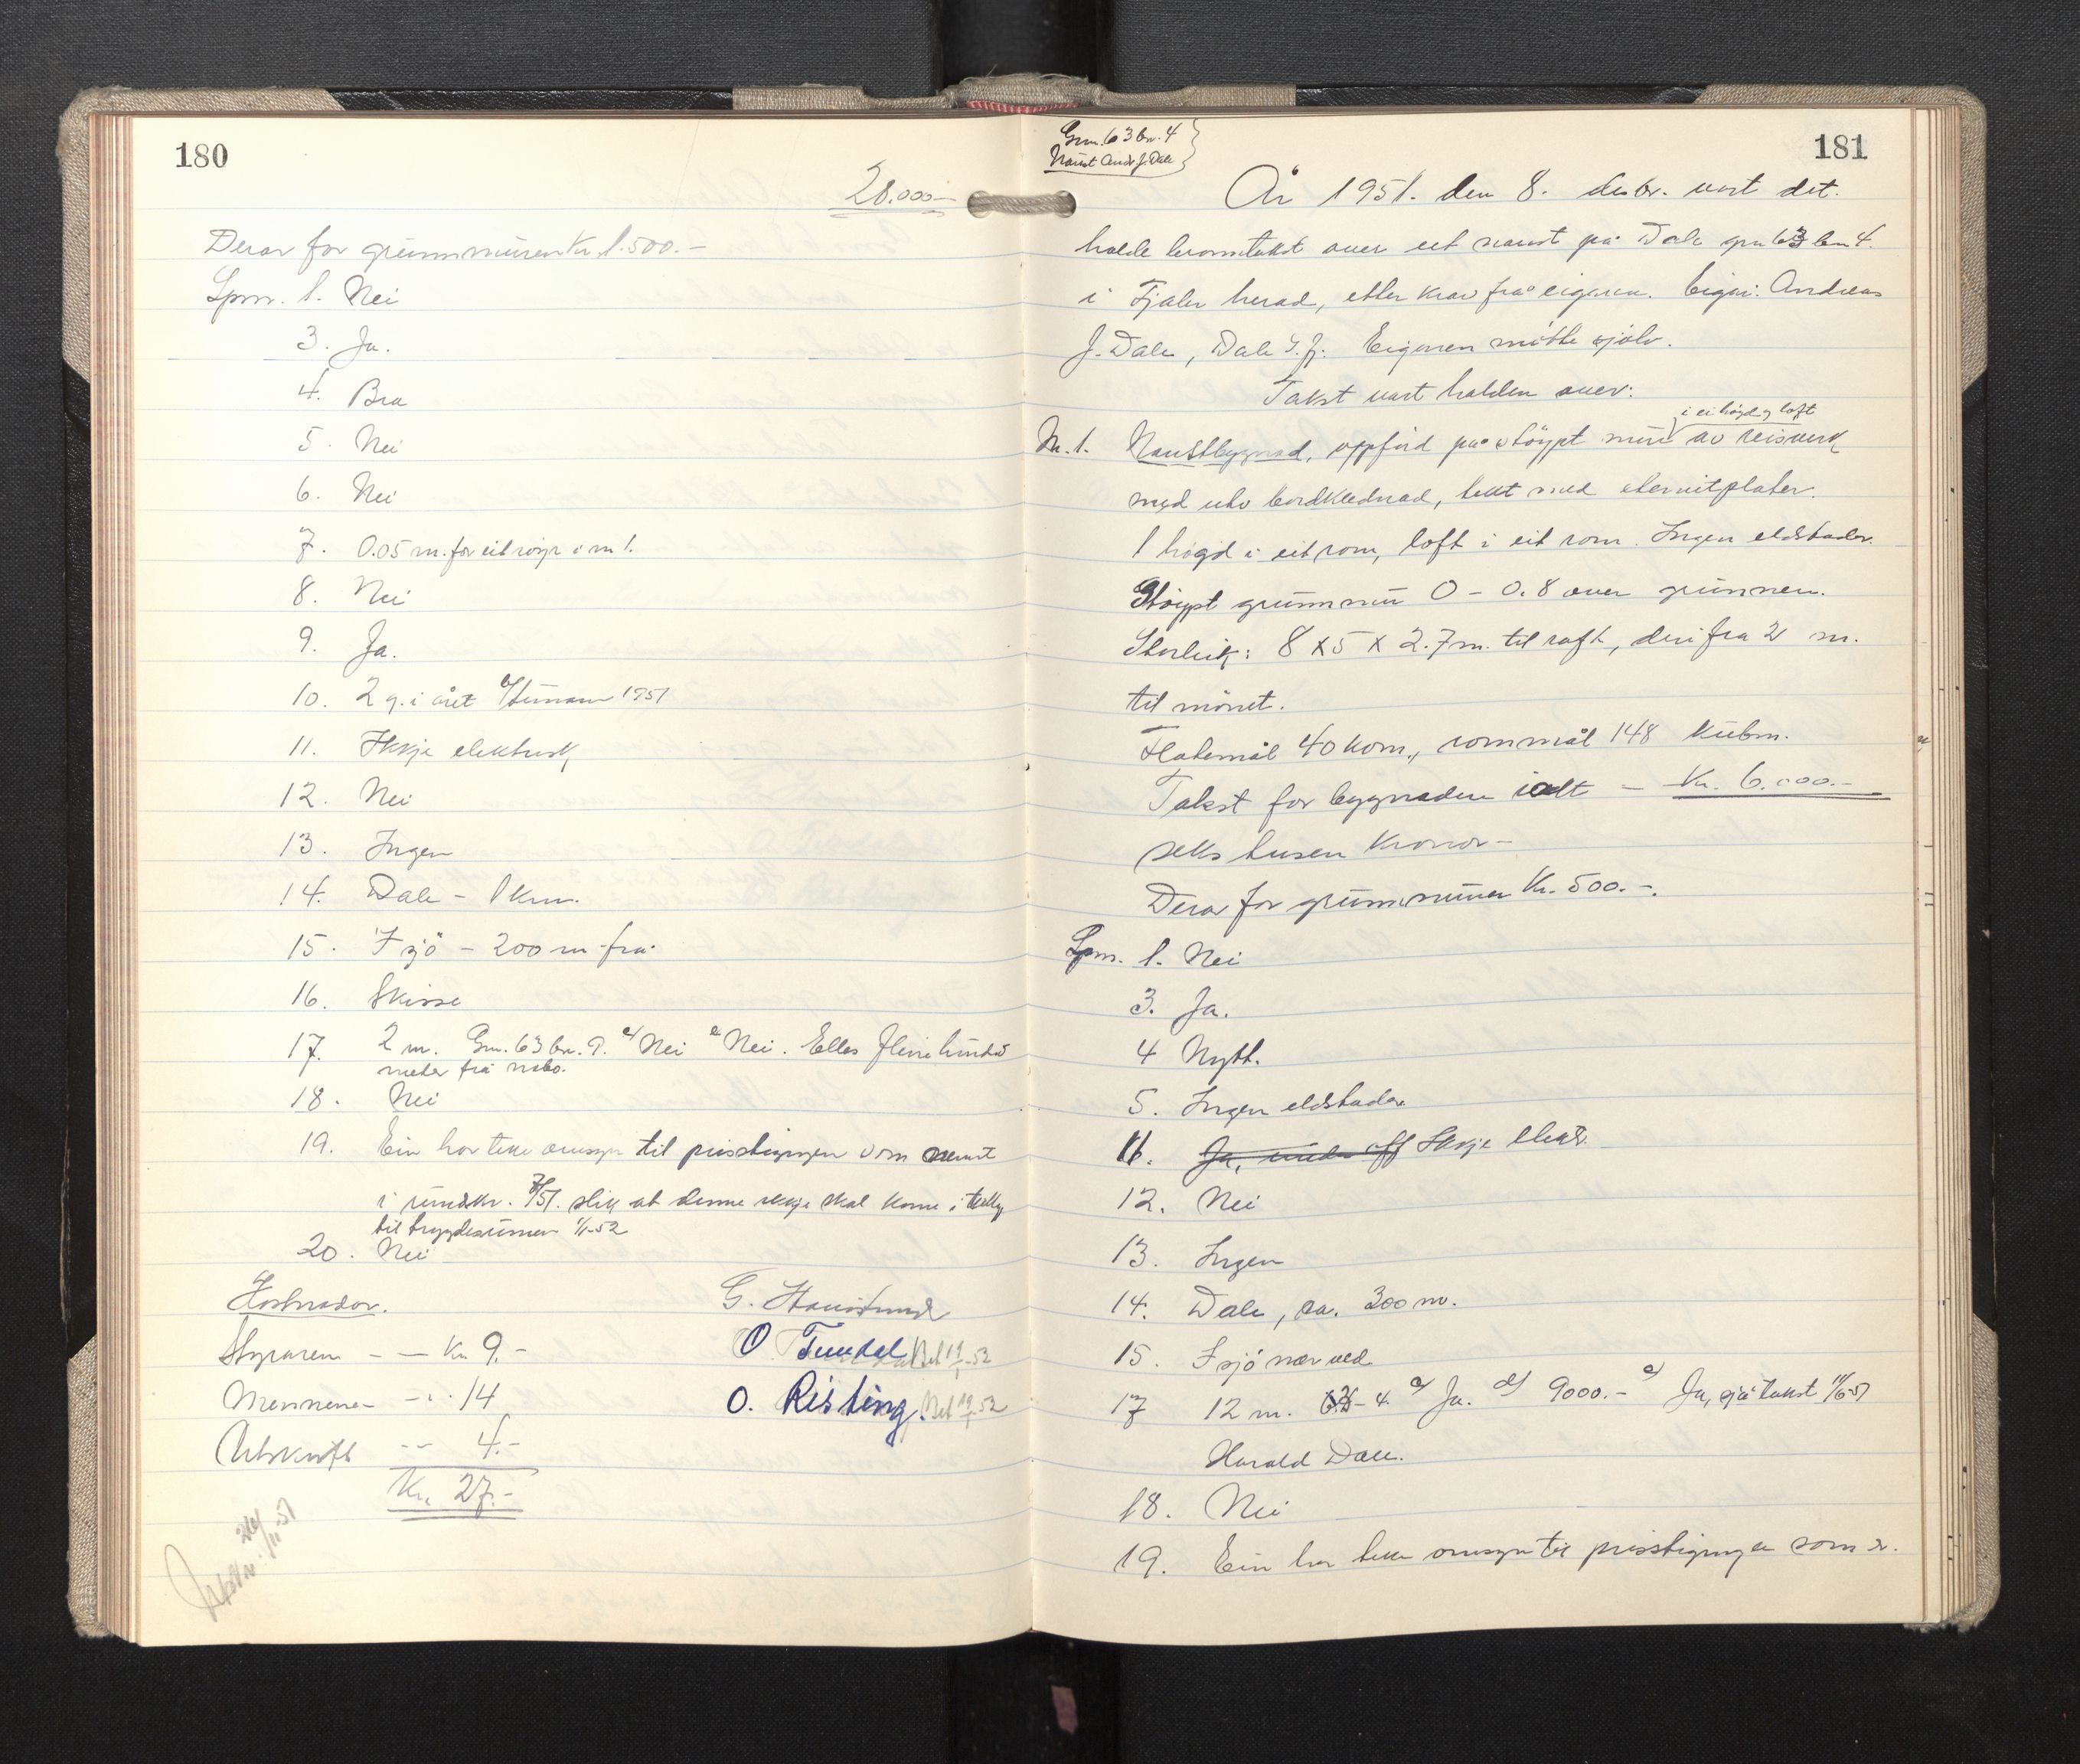 180
28.000.-
Derav for grunnmuren Kr. 1.500.-
Spm. 1. Nei
3. Ja.
4. Bra
5. Nei
6. Nei
7. 0.05 m. for eit røyr i nr 1.
8. Nei
9. Ja.
10. 2 g. i året 1951
11. Ikkje elektrisk
12. Nei
13. Ingen
14. Dale - 1 km.
15. I sjø - 200 m frå
16. Skisse
17. 2 m. Gnr. 63 bnr. 9. Nei Nei. Elles fleire hundre
meter frå nabo.
18. Nei
19. Ein har teke omsyn til prisstigningen som nemnt
i rundskr. 7/51. slik at denne ikkje skal kome i tillegg
til trygdesummen 1/1-52
20. Nei
Kostnader.
Styraren - - Kr 9.-
Mennene - " 14
Utskrift -- 4.-
Kr. 27.-
O. Risting.
Gnr. 63 bnr. 4
Naust Andr. J. Dale
181
År 1951. den 8. desbr. vart det
halde branntakst over eit naust på Dale gnr 63 bnr 4.
i Fjaler herad, etter krav frå eigaren. Eigar: Andreas
J. Dale, Dale S.fj. Eigaren møtte sjølv.
Takst vart halden over:
i ei høgd og loft
Nr. 1. Naustbygnad, oppførd på støypt mur av reisverk
med utv bordklednad, tekt med eternitplater.
1 høgd i eit rom, loft i eit rom. Ingen eldstader.
Støypt grunnmur 0 - 0.8 over grunnen.
Storleik: 8 x 5 x 2.7 m. til raft, derifra 2 m.
til mønet.
Flatemål 40 kvm., rommål 148 kubm.
Takst for bygnaden ialt - Kr. 6.000.-
seks tusen kroner -
Derav for grunnmuren Kr. 500.-.
Spm. 1. Nei
3. Ja.
4 Nytt.
5. Ingen eldstader.
11. Ja, under off Ikkje elektr.
12. Nei
13. Ingen
14. Dale, ca. 300 m.
15. I sjø nær ved
17 12 m. 63 - 4. c) Ja. d) 9000.- e) Ja, sjå takst 11/6-51
Harald Dale.
18. Nei
19. Ein har teke omsyn til prisstigningen som er